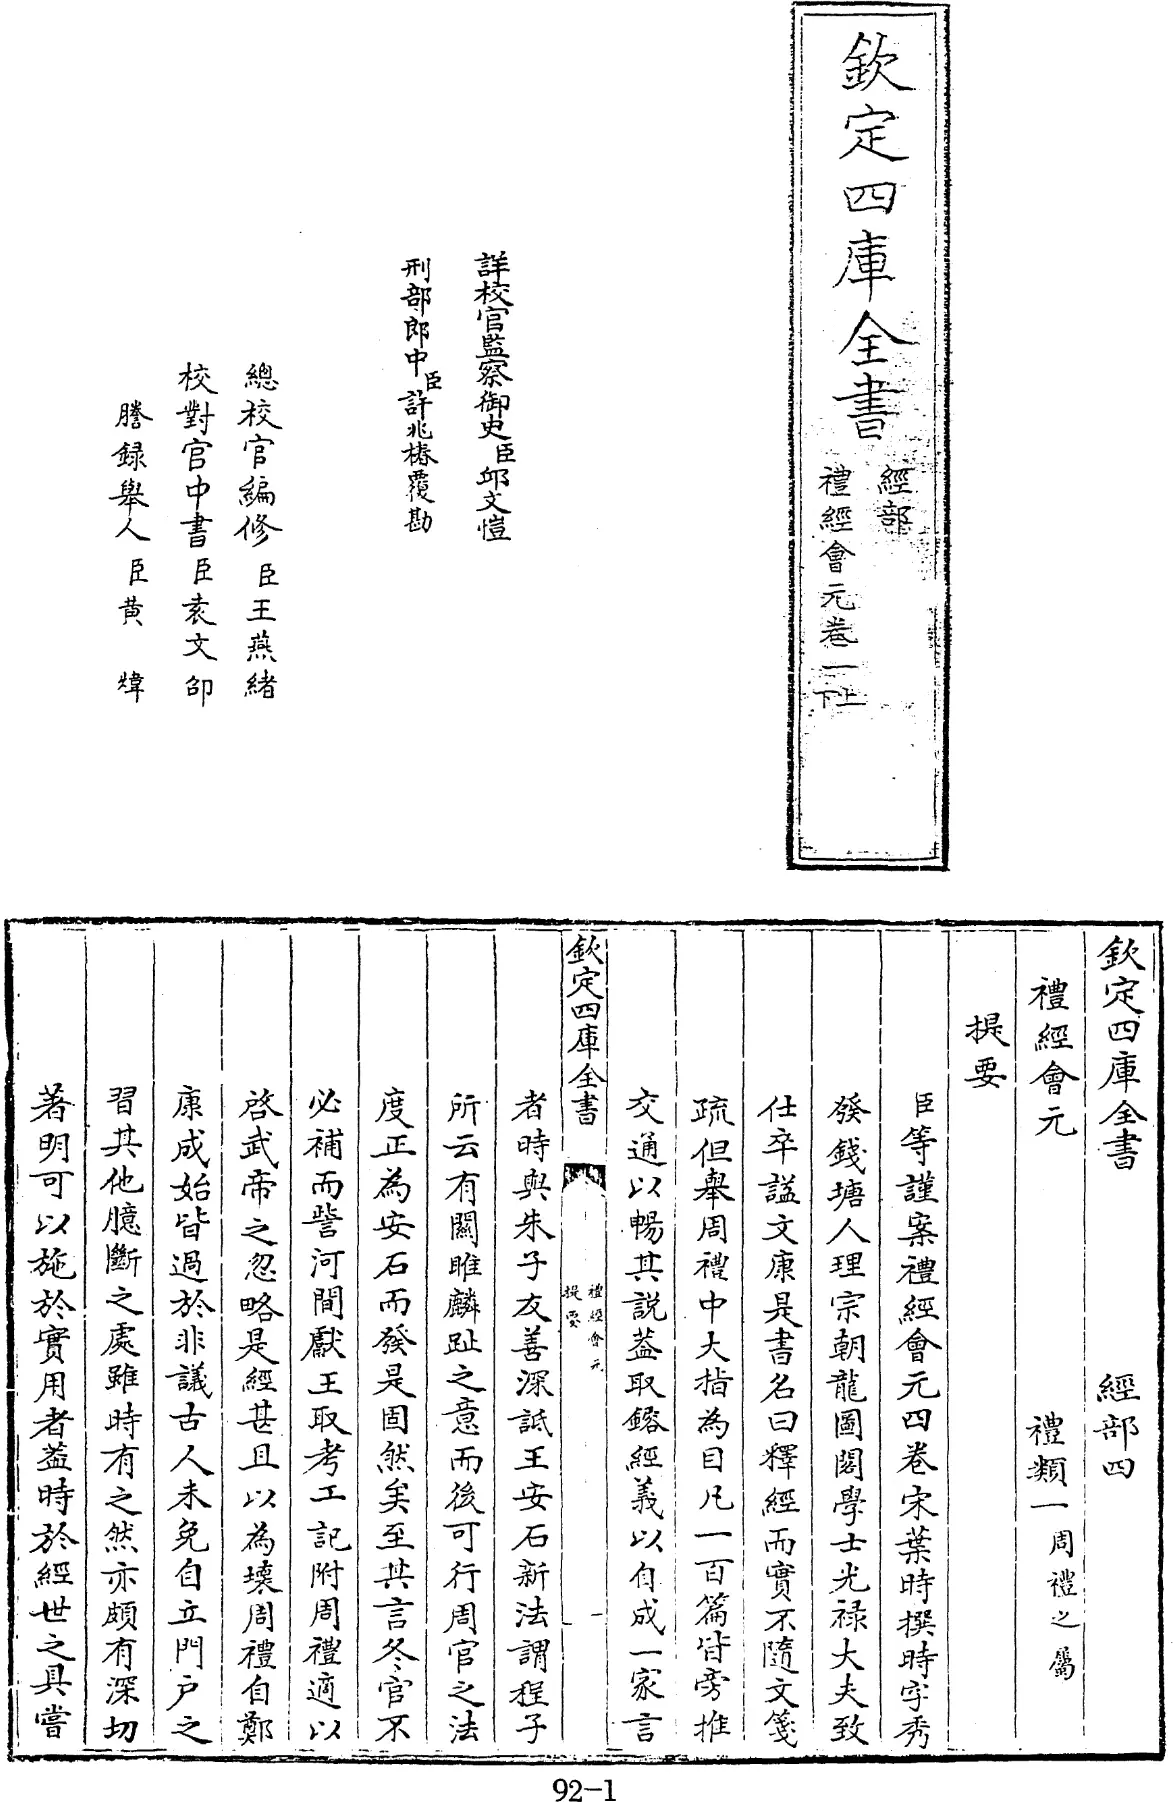 欽定四庫全書
經部
禮經會元卷一上下
詳校官監察御史臣邱文愷
刑部郎中臣許兆椿覆勘
總校官編修臣王燕緒
校對官中書臣袁文邵
謄録舉人臣黄煒
欽定四庫全書 經部四
禮經會元 禮類一周禮之屬
提要
臣等謹案禮經會元四卷宋葉時撰時字秀
發錢塘人理宗朝龍圖閣學士光禄大夫致
仕卒謚文康是書名曰釋經而實不隨文箋
疏但舉周禮中大指為目凡一百篇皆旁推
交通以暢其説葢取鎔經義以自成一家言
欽定四庫全書 禮經會元 提要 一
者時與朱子友善深詆王安石新法謂程子
所云有關雎麟趾之意而後可行周官之法
度正為安石而發是固然矣至其言冬官不
必補而訾河間獻王取考工記附周禮適以
啓武帝之忽略是經甚且以為壞周禮自鄭
康成始皆過於非議古人未免自立門户之
習其他臆斷之處雖時有之然亦頗有深切
著明可以施於實用者葢時於經世之具嘗
92-1